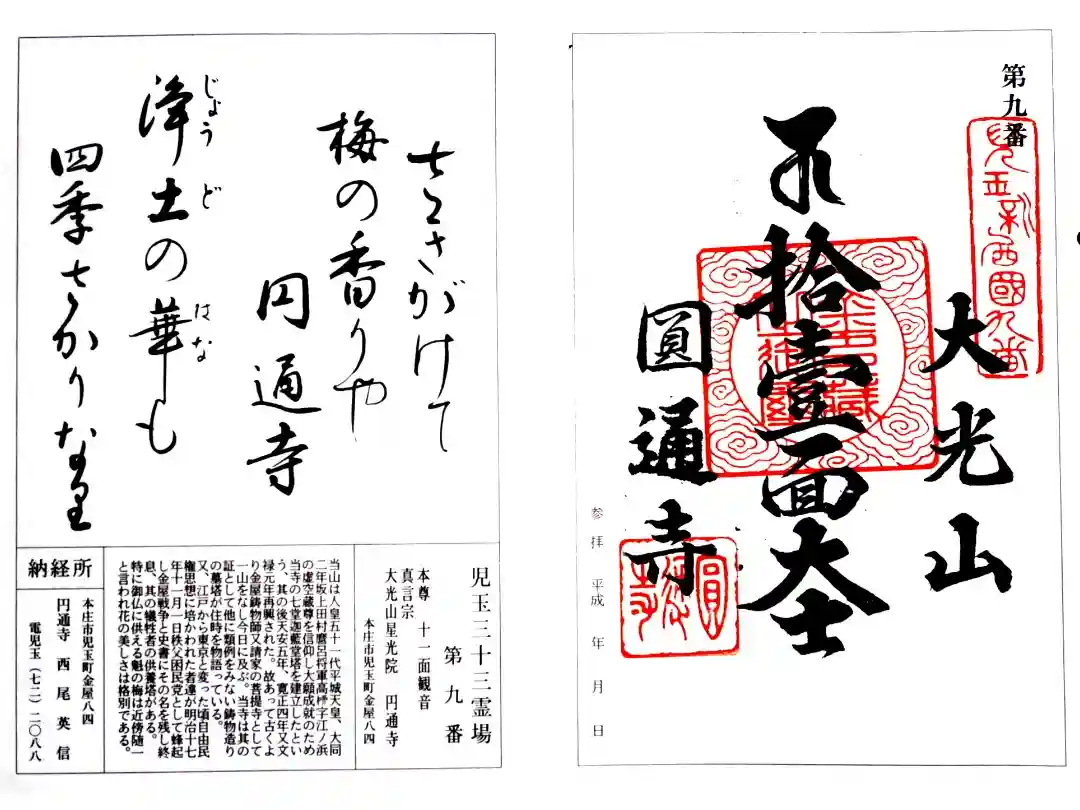 第九番
児玉新西國九番
大光山
拾壹面大士
圓通寺
参拝 平成 年 月 日
さきがけて
梅の香りや
円通寺
浄土の華も
じょうど
はな
四季さかりなり
児玉三十三霊場
第九番
本尊 十一面観音
真言宗
大光山星光院 円通寺
本庄市児玉町金屋八四
当山は人皇五十一代平城天皇、大同
二年坂上田村麿呂将軍高梓字江ノ浜
の虚空蔵尊を信仰し大願成就のため
当寺の七堂迦藍堂塔を建立したとい
う、其の後天安五年、寛正四年又文
禄元年再興された。故あって古くよ
り金屋鋳物師又請家の菩提寺として
一山をなし今日に及ぶ。当寺は其の
証として他に類例をみない鋳物造り
の墓塔が住時を物語っている。
又、江戸から東京と変った頃自由民
権思想に培かわれた者達が明治十七
年十一月一日秩父困民党として蜂起
し金屋戦争と史書にその名を残し終
息、其の犠牲者の供養塔がある。
特に御仏に供える魁の梅は近傍随一
と言われ花の美しさは格別である。
納経所
本庄市児玉町金屋八四
円通寺 西尾英信
電児玉(七二)二〇八八